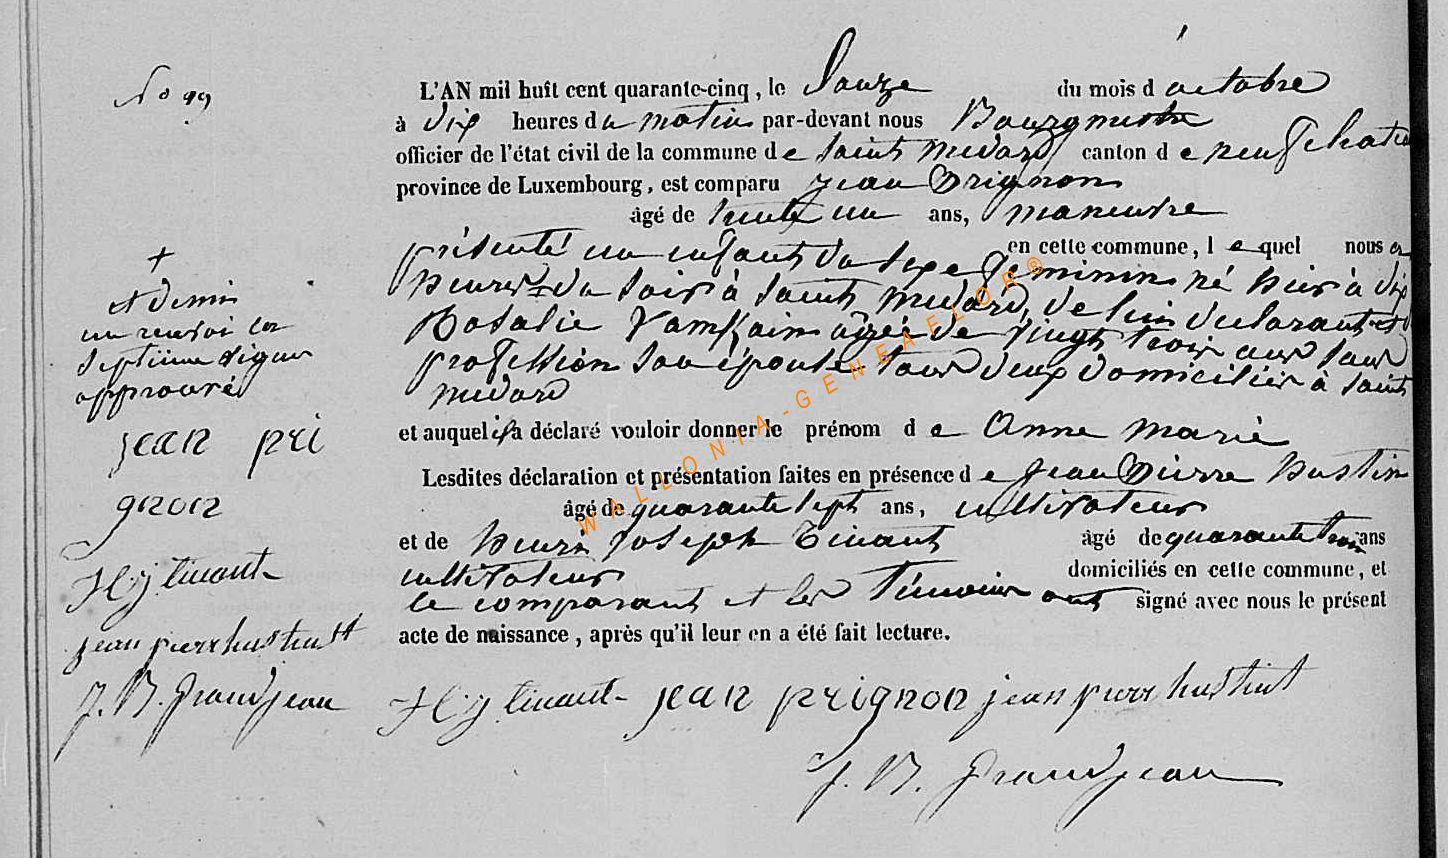 No 99
L'AN mil huit cent quarante-cinq, le Douze du mois d'octobre
à dix heures du matin par-devant nous Bourgmestre
officier de l'état civil de la commune de Saint Médard canton de neufchateau
province de Luxembourg, est comparu Jean Prignon
âgé de trente un ans, manœuvre
en cette commune, lequel nous a
présenté un enfant du sexe feminin né hier à dix
heures + du soir à Saint Médard, de lui déclarant et de
Rosalie Vamkain âgée de vingt trois ans sans
profession son épouse tous deux domiciliés à Saint
médard
et auquel il a déclaré vouloir donner le prénom de Anne Marie
Lesdites déclaration et présentation faites en présence de Jean Pierre Hustin
âgé de quarante sept ans, cultivateur
et de henri joseph Tinant âgé de quarante trois ans
cultivateur domiciliés en cette commune, et
le comparant et les témoins ont signé avec nous le présent
acte de naissance, après qu'il leur en a été fait lecture.
+
et demi
un renvoi en
septième ligne
approuvé
jean pri
gnon
H j tinant
jean pierr hustin
J. B. Grandjean
H j tinant jean prignon jean pierr hustint
J. B. Grandjean
WALLONIA-GENEAELOR®